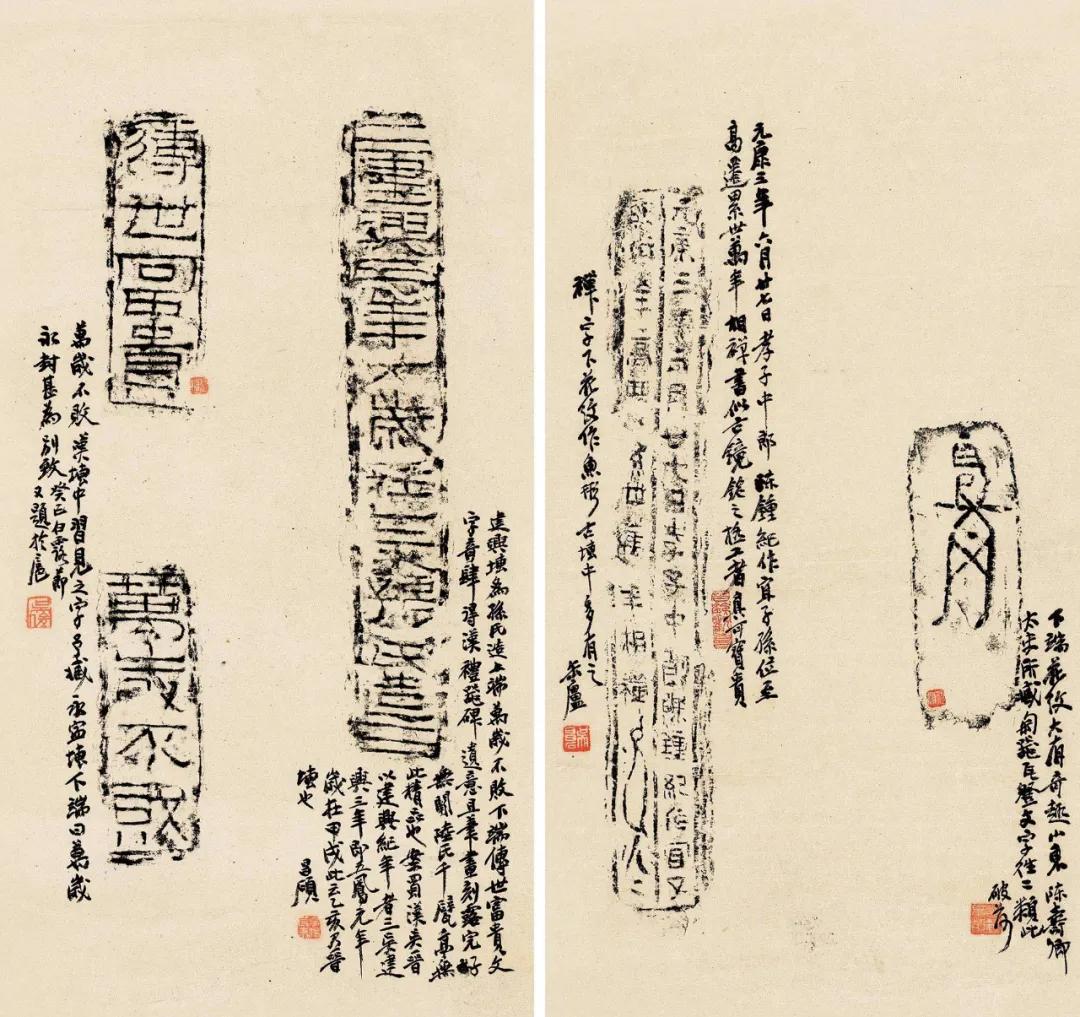 下端花紋大有奇趣山東陳壽卿
太史所藏匋器瓦登文字往二類此
破荷
元康三年六月廿七日孝子中郎陳鍾紀作宜子孫位至
高遷累世萬年相禪書似古鏡銘之極工者真可寶貴
元康三年六月廿七日孝子中郎陳鍾紀作宜子
孫位至高遷累世萬年相禪
禪字下花紋作魚形古塼中多有之 缶廬
建興三年太歲在乙亥孫氏造
建興塼為孫氏造上端萬歲不敗下端傳世富貴文
字奇肆得漢禮器碑遺意且筆畫刻露完好
無闕陸氏千甓亭無
此精品也案蜀漢吳晉
以建興紀年者三吳建
興三年即五鳳元年
歲在甲戌此云乙亥乃晉
塼也 昌碩
傳世富貴
萬歲不敗
萬歲不敗漢塼中習見之字予藏永寧塼下端曰萬歲
永封甚為別致癸丑白露節
又題於扈